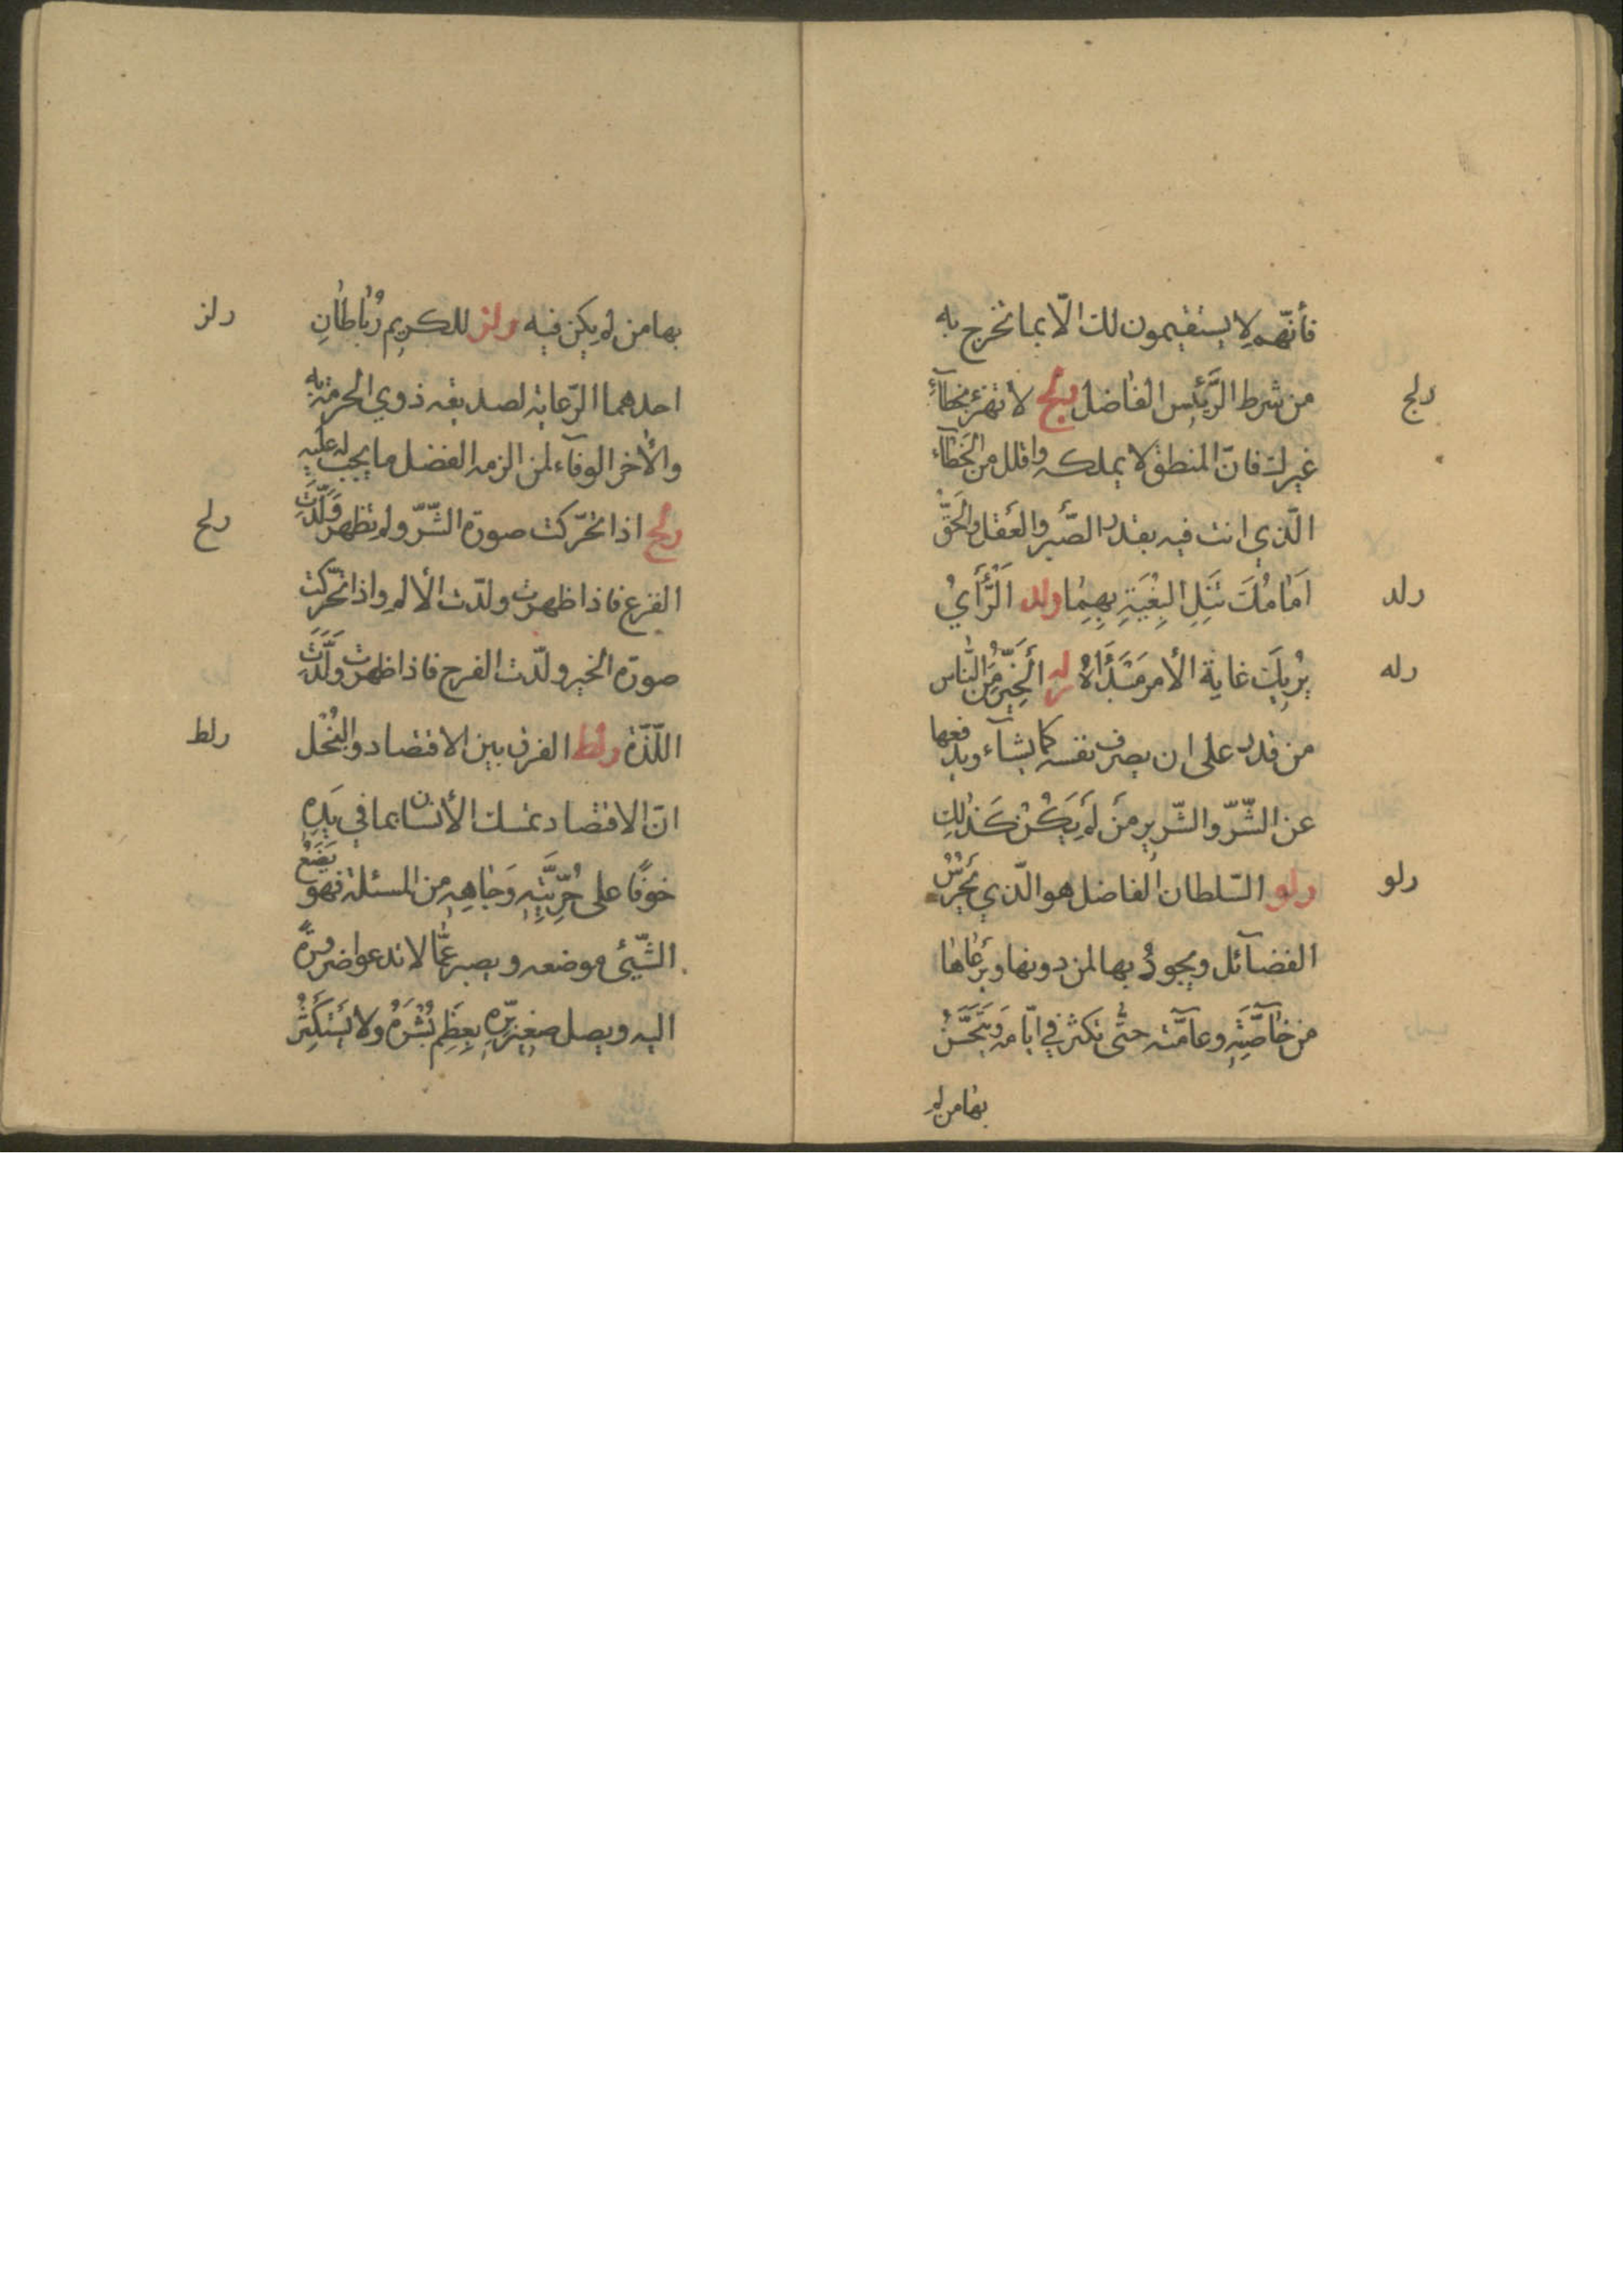 فأنّهم لا يستقيمون لك الّا بما تخرج به
من شرط الرّئيس الفاضل رلج لا تهزء بخطآء
رلج
غيرك فانّ المنطق لا يملكه واقلل من الخطآء
الّذي انت فيه بقدر الصّبر والعقل والحقّ
اَمامُكَ تَنَلِ البِغْيَةِ بِهِمٰا رلد اَلرَّأيُ
رلد
يُرِيكَ غاية الأمر مَبْدَأهُ رله اَلْخَيِّرُ مِنَ النّاس
رله
من قدر على ان يصرف نفسه كما يشآء ويدفعها
عن الشّرّ والشّرير من لَمْ يَكُنْ كَذٰلِك
رلو السّلطان الفاضل هو الّذي يَحْرُسُ
رلو
الفضآئل ويجودُ بها لمن دونها ويرعاها
من خاۤصَّتِهِ وعاۤمّته حتّى تكثر في ايّامه وَيَتَحَسَّنُ
بها من لم
بها من لم يكن فيه رلز للكريم رُبٰاطٰانِ
رلز
احدهما الرّعاية لصديقه ذوي الحرمة به
والأخر الوفآء لمن الزمه الفضل ما يجب له عليه
رلح اذا تحرّكت صورة الشّرّ ولم تظهر وَلَّدَتِ
رلح
الفزع فاذا ظهرت ولّدت الألم واذا تحرّكت
صورة الخير ولّدت الفرح فاذا ظهرت وَلَّدَتِ
اللّذّة رلط الفرق بين الاقتصاد والبُخْل
رلط
انّ الاقتصاد تمسك الأنسان بما في يَدِهِ
خوفًا على حُرِّيَّتِهِ وَجٰاهِهِ من المسئلة فهو يَضَعُ
الشّيئ موضعه ويصبر عمّا لا تدعوا ضرورةً
اليه ويصل صغير بِرِّهِ بِعِظَمِ بُشْرِهِ ولا يَسْتَكْثِرُ